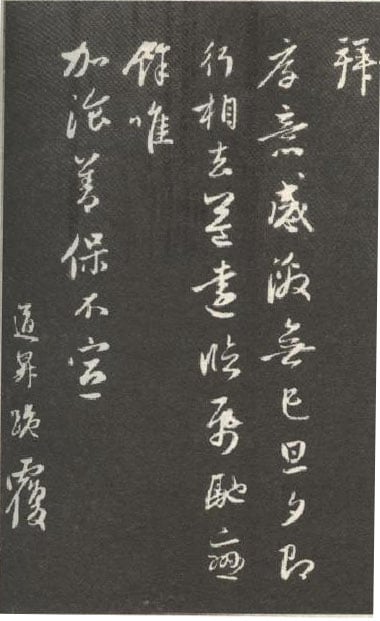 拜
厚意感激無已旦夕即
行相去益遠臨帋馳戀
餘唯
加湌善保不宣
道昇跪覆